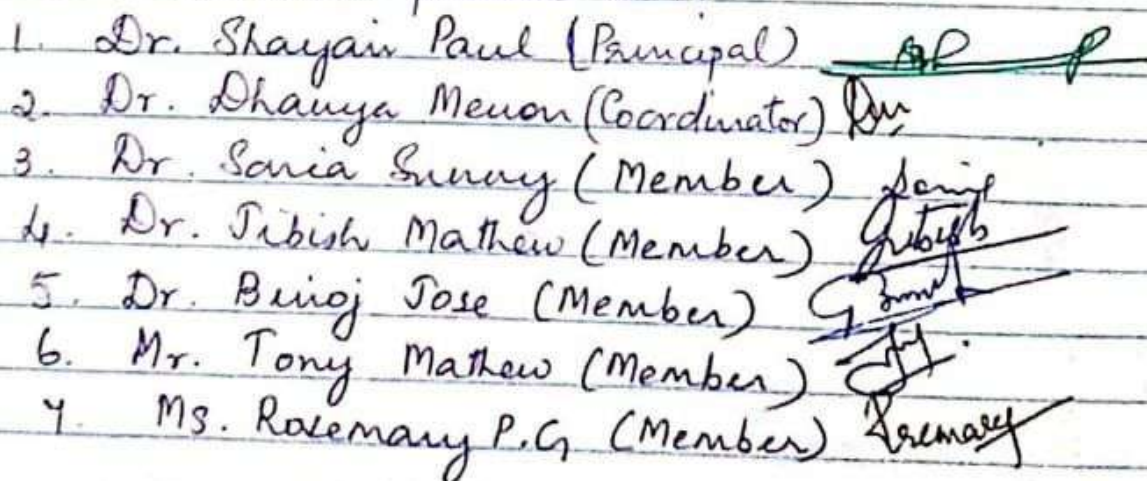 1. Dr. Shayain Paul (Principal)
2. Dr. Dhanya Menon (Coordinator)
3. Dr. Sania Sunny (Member)
4. Dr. Jibish Mathew (Member) Jibish
5. Dr. Binoj Jose (Member)
6. Mr. Tony Mathew (Member)
7. Ms. Rosemary P.G (Member) Rosemary